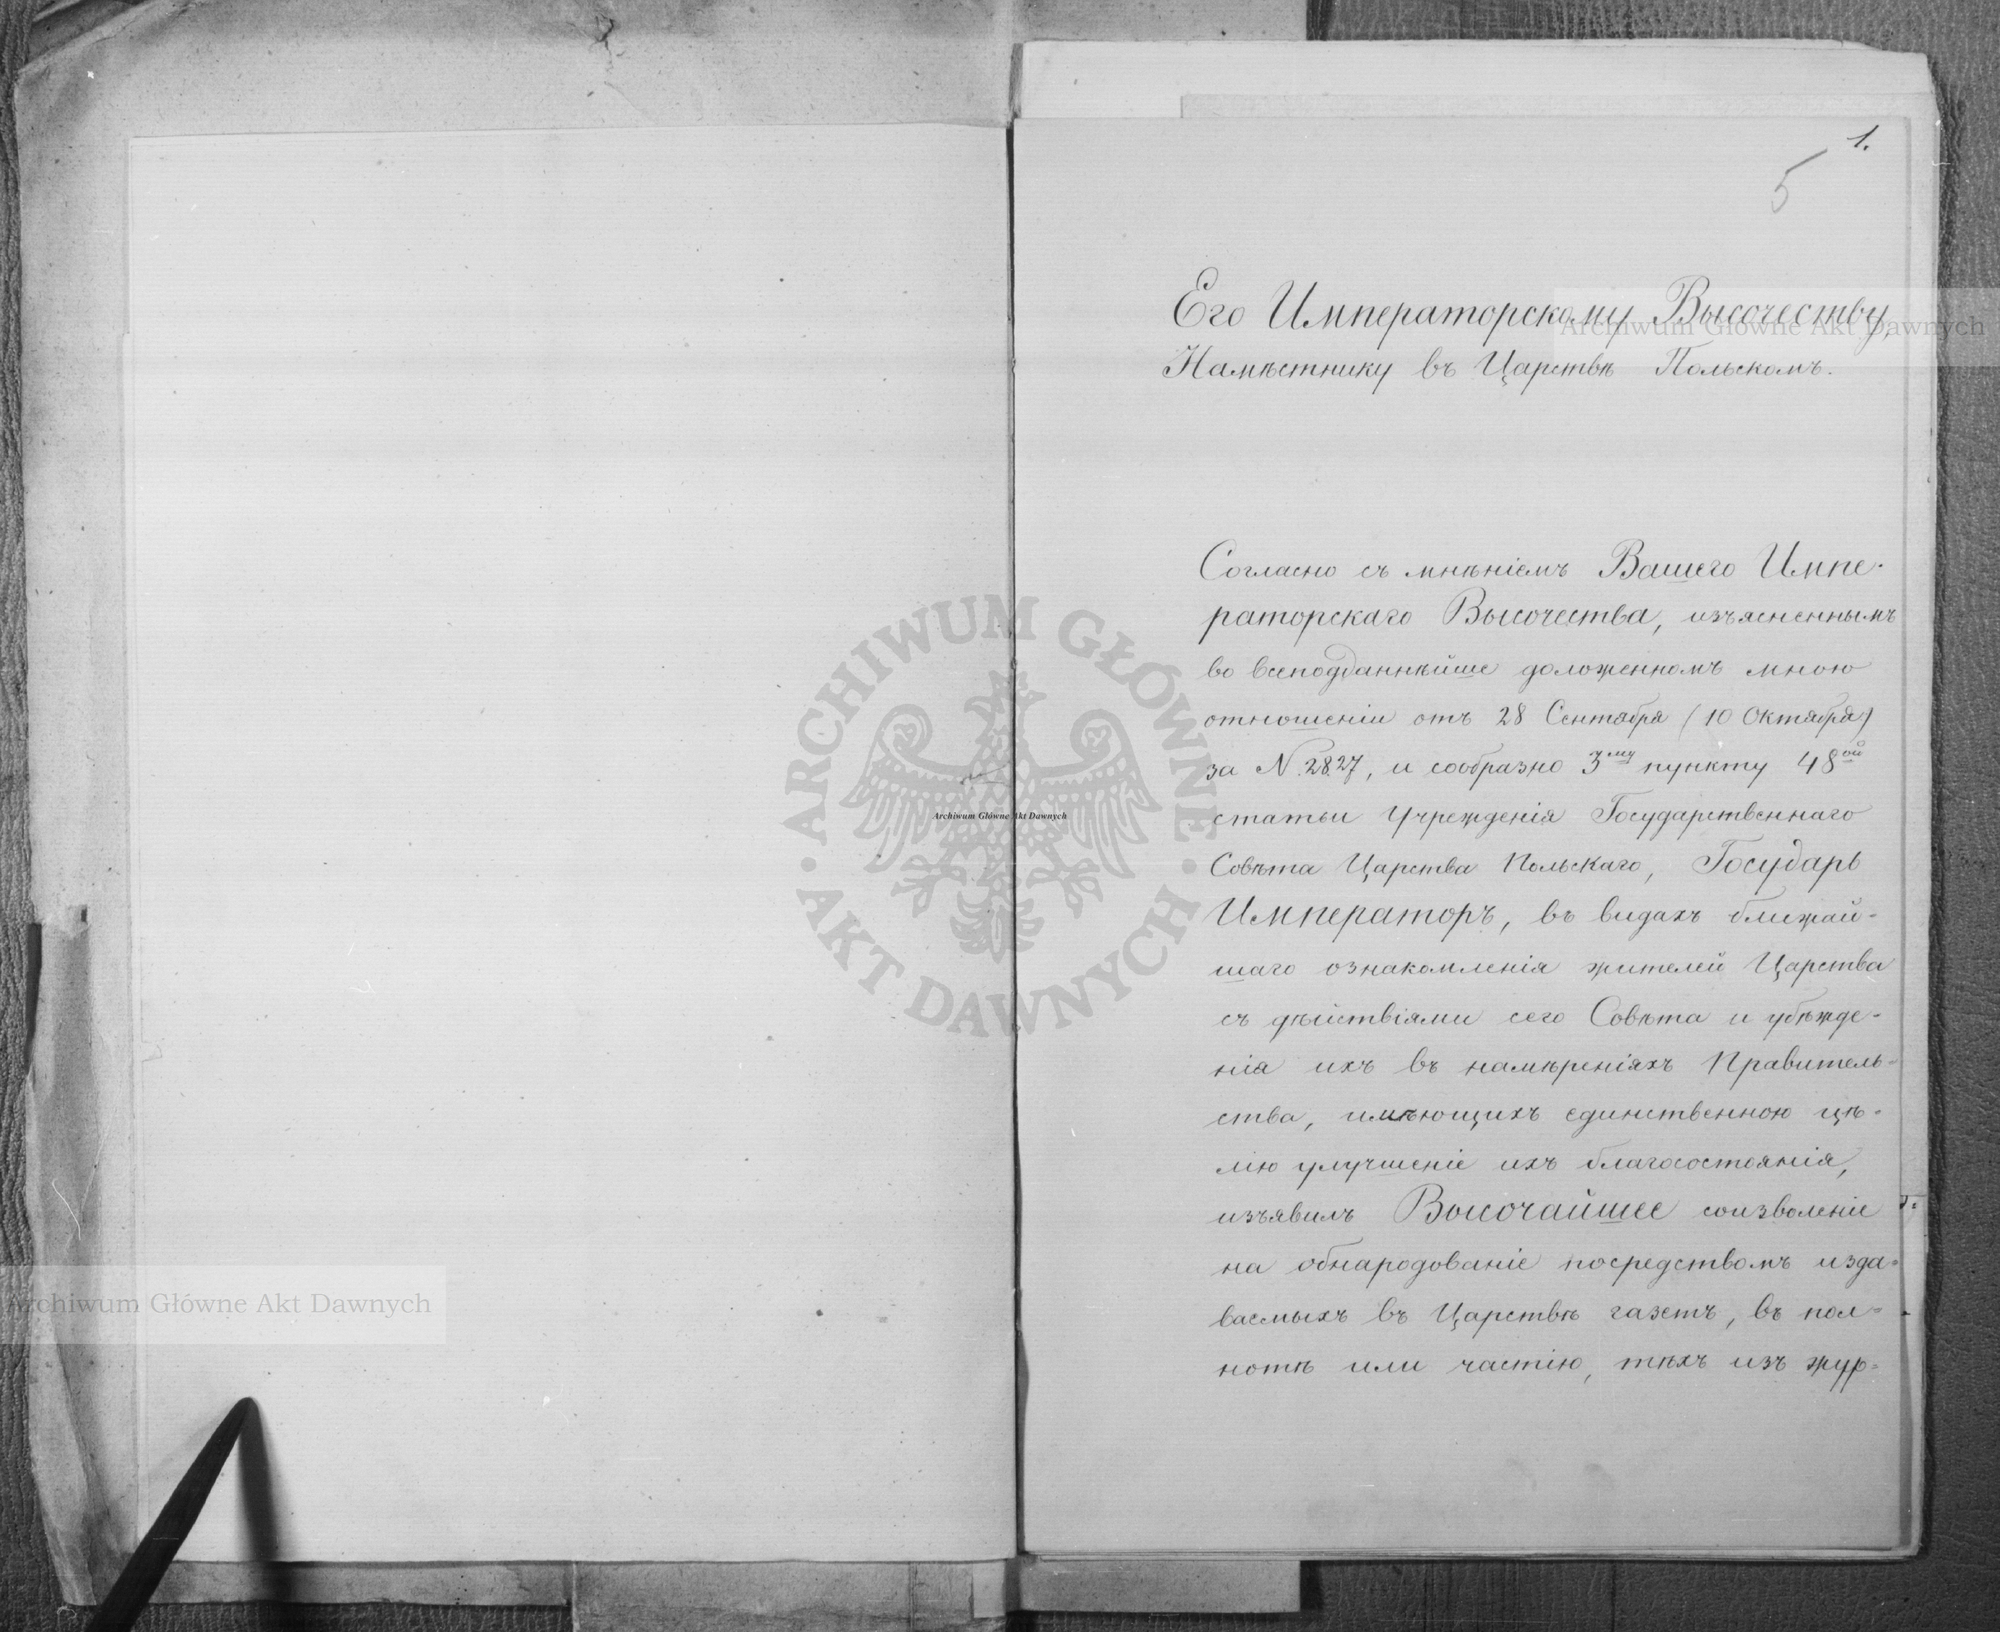 1.
5
Его Императорскому Высочеству,
Намѣстнику въ Царствѣ Польскомъ.
Согласно съ мнѣніемъ Вашего Импе-
раторскаго Высочества, изъясненнымъ
во всеподданнѣйше доложенномъ мною
отношеніи отъ 28 Сентября (10 Октября)
за N. 2827, и сообразно 3му пункту 48ой
статьи Учрежденія Государственнаго
Совѣта Царства Польскаго, Государь
Императоръ, въ видахъ ближай-
шаго ознакомленія жителей Царства
съ дѣйствіями сего Совѣта и убѣжде-
нія ихъ въ намѣреніяхъ Правитель-
ства, имѣющихъ единственною цѣ-
лію улучшеніе ихъ благосостоянія,
изъявилъ Высочайшее соизволеніе
на обнародованіе посредствомъ изда-
ваемыхъ въ Царствѣ газетъ, въ пол-
нотѣ или частію, тѣхъ изъ жур-
Archiwum Główne Akt Dawnych
Archiwum Główne Akt Dawnych
Archiwum Główne Akt Dawnych
ARCHIWUM GŁÓWNE · AKT DAWNYCH ·